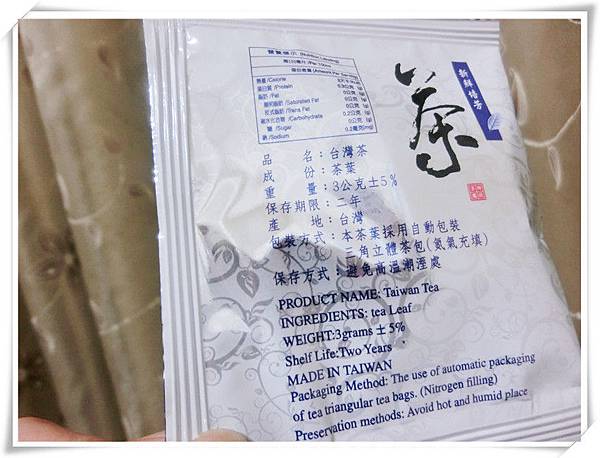 營養標示 (Nutrition Labeling)
每100毫升 /Per 100ml
熱量/Calorie
蛋白質 /Protein 0.2公克 (g)
脂肪 /Fat 0公克 (g)
飽和脂肪 /Saturated Fat 0公克 (g)
反式脂肪 /Trans Fat 0公克 (g)
碳水化合物 /Carbohydrate 0.2公克 (g)
糖 /Sugar 0公克 (g)
鈉 /Sodium 0.2毫克(mg)
茶
新鮮焙芳
品名：台灣茶
成份：茶葉
重量：3公克±5%
保存期限：二年
產地：台灣
包裝方式：本茶葉採用自動包裝
三角立體茶包(氮氣充填)
保存方式：避免高溫潮溼處
PRODUCT NAME: Taiwan Tea
INGREDIENTS: tea Leaf
WEIGHT:3grams ± 5%
Shelf Life:Two Years
MADE IN TAIWAN
Packaging Method: The use of automatic packaging
of tea triangular tea bags. (Nitrogen filling)
Preservation methods: Avoid hot and humid place